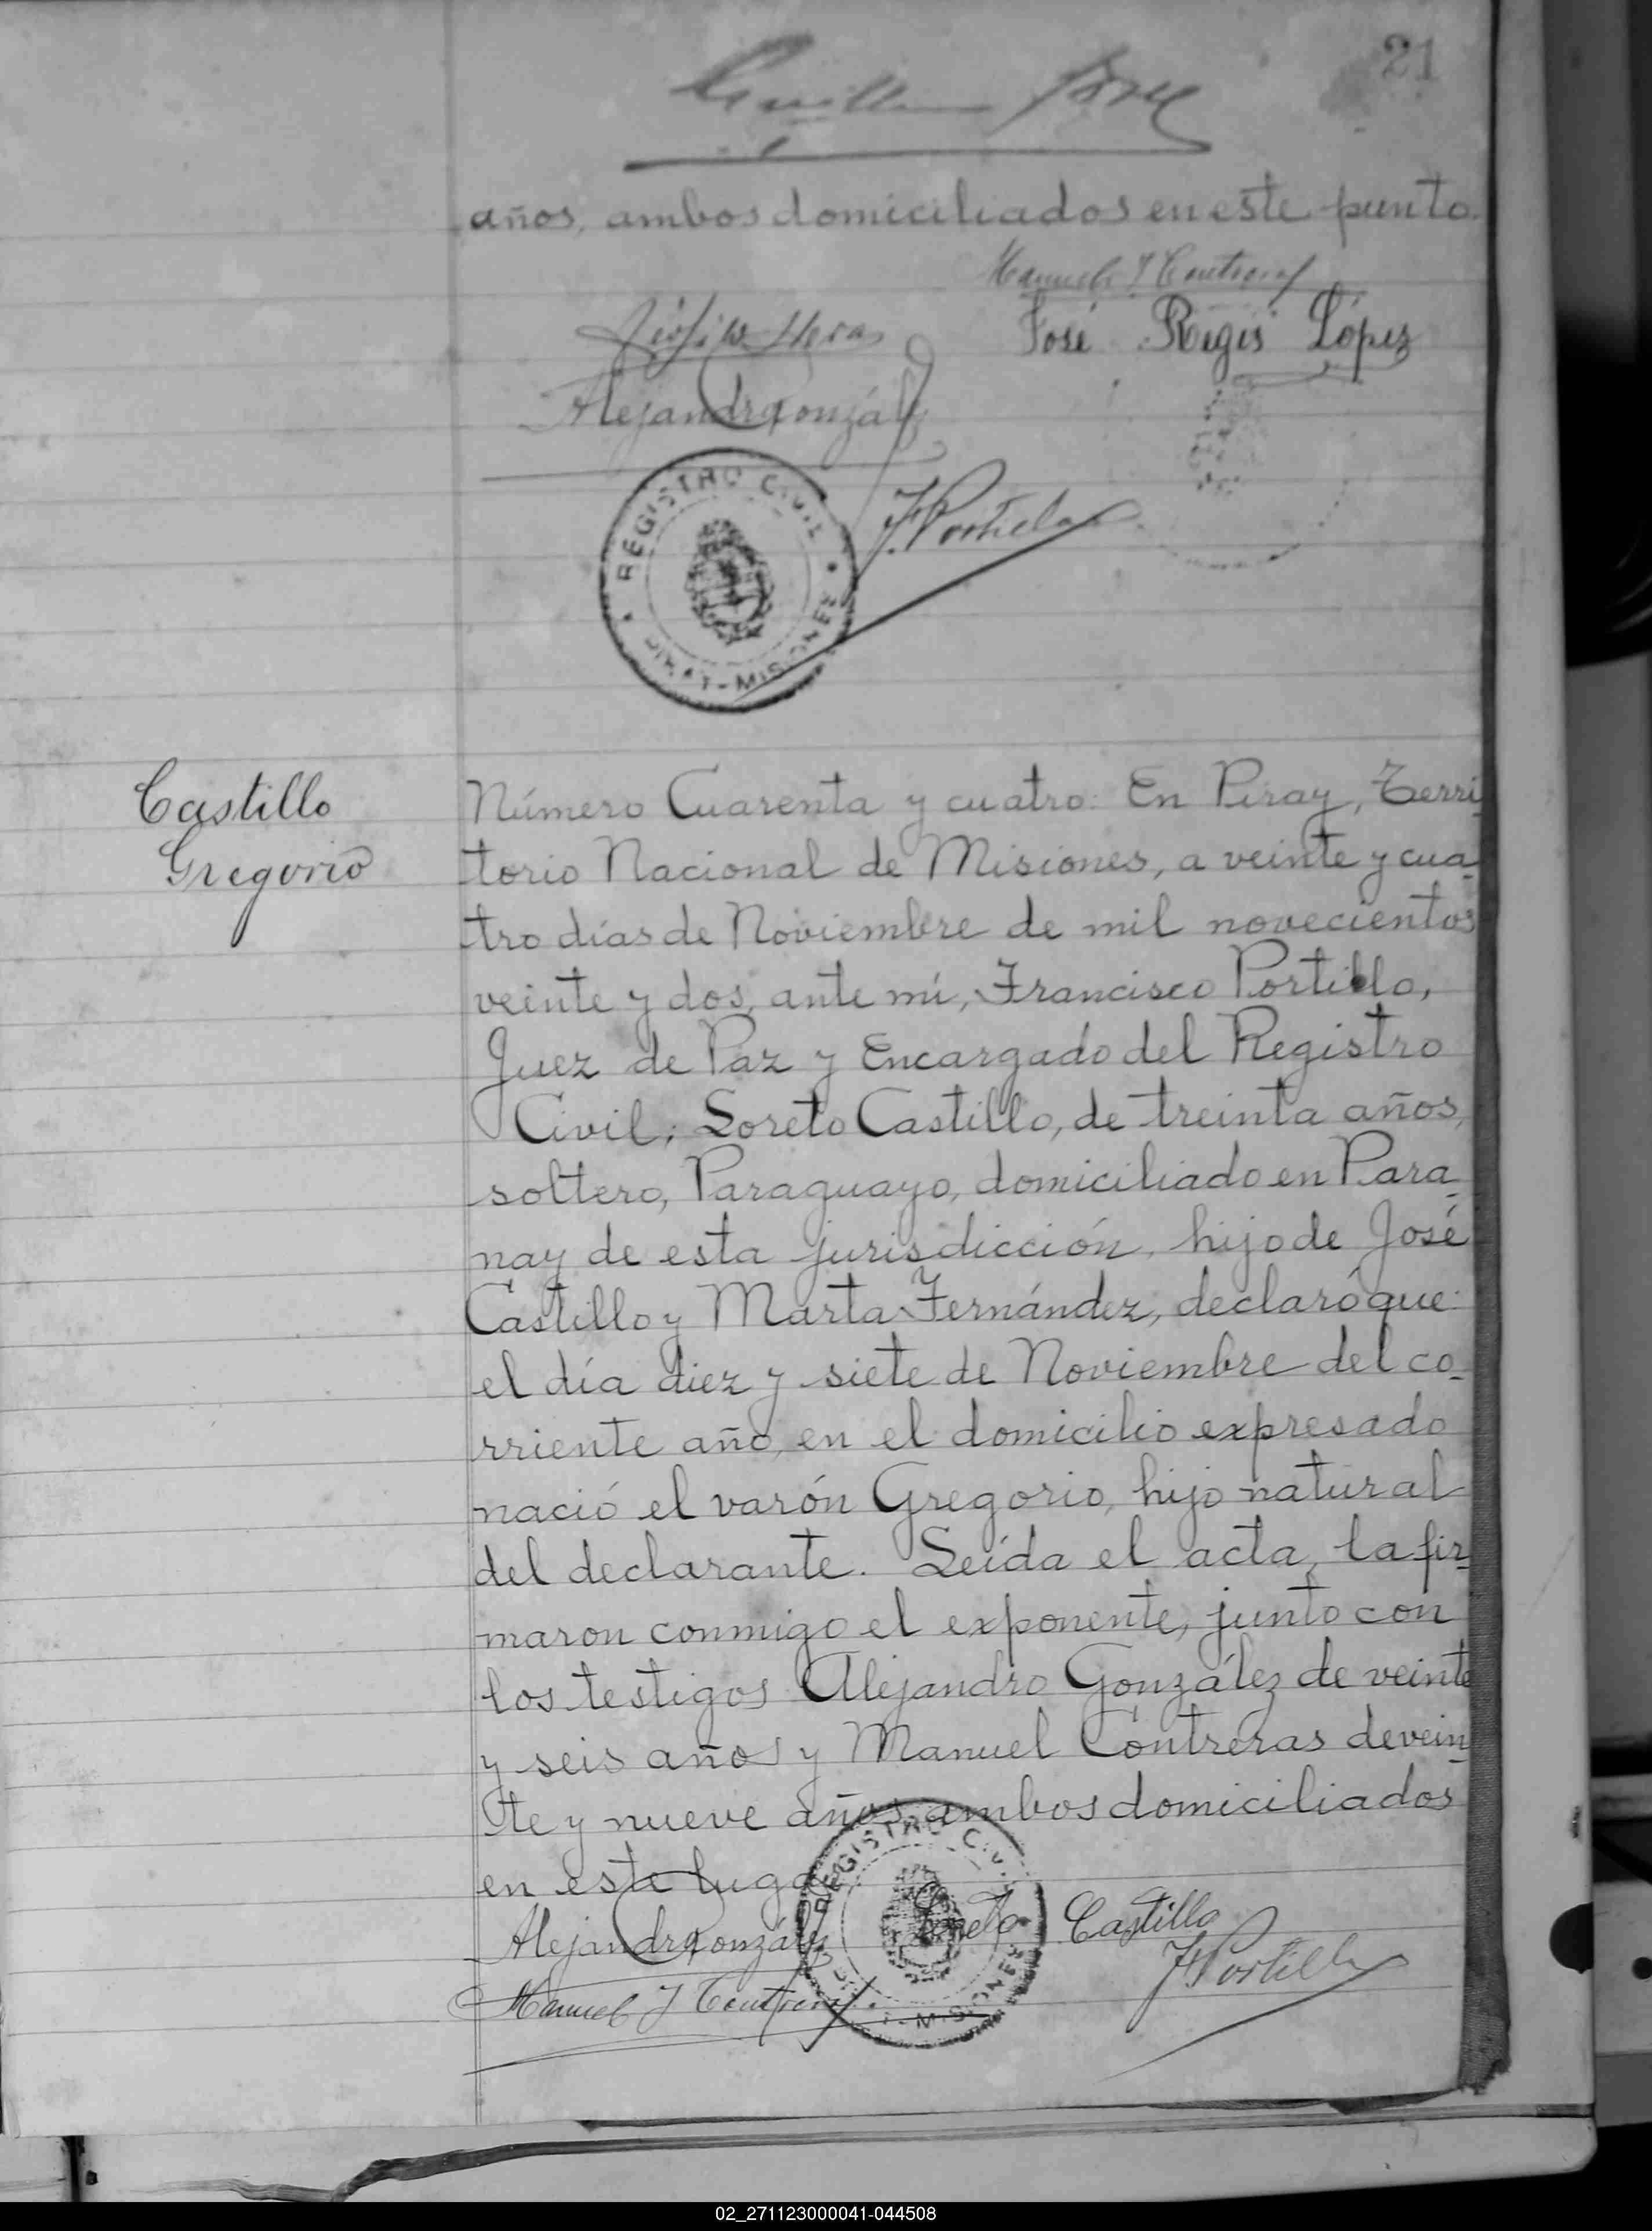 21
años, ambos domiciliados en este punto.
Manuel J Contreras
José Regis López
Alejandro González
REGISTRO CIVIL
PIRAY - MISIONES
F. Portillo
Castillo
Gregorio
Número Cuarenta y cuatro: En Piray, Terri
torio Nacional de Misiones, a veinte y cua-
tro días de Noviembre de mil novecientos
veinte y dos, ante mí, Francisco Portillo,
Juez de Paz y Encargado del Registro
Civil; Loreto Castillo, de treinta años,
soltero, Paraguayo, domiciliado en Para-
nay de esta jurisdicción, hijo de José
Castillo y Marta Fernández, declaró que:
el día diez y siete de Noviembre del co-
rriente año, en el domicilio expresado
nació el varón Gregorio, hijo natural
del declarante. Leída el acta, la fir-
maron conmigo el exponente, junto con
los testigos Alejandro González de veinte
y seis años y Manuel Contreras de vein-
te y nueve años, ambos domiciliados
en este lugar
REGISTRO CIVIL
MISIONES
Alejandro González
Loreto Castillo
F. Portillo
Manuel J Contreras
02_271123000041-044508